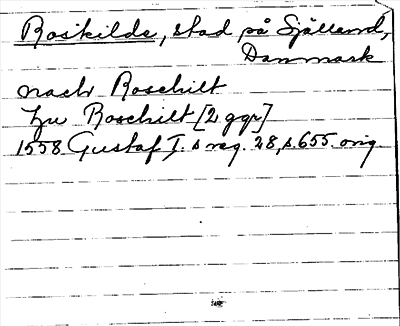 Roskilde, stad på Själland,
Danmark
nach Roschilt
Zu Roschilt [2 ggr]
1558 Gustaf I. s reg. 28, s. 655. orig.